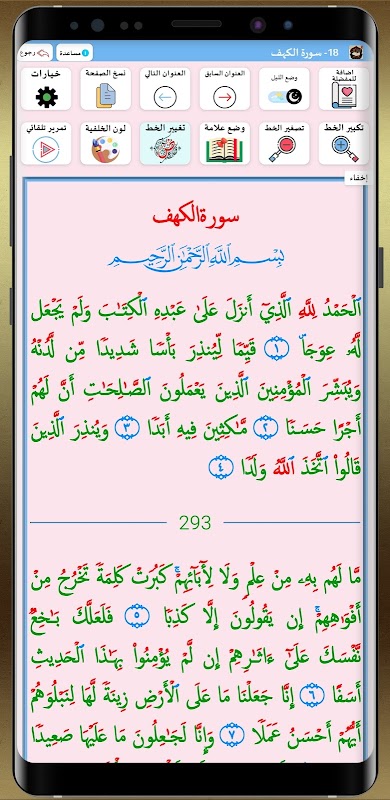 18- سورة الكهف
مساعدة
رجوع
اضافة للمفضلة
وضع الليل
العنوان السابق
العنوان التالي
نسخ الصفحة
خيارات
تكبير الخط
تصغير الخط
وضع علامة
تغيير الخط
لون الخلفية
تمرير تلقائي
إخفاء
سورة الكهف
بِسْمِ اللَّهِ الرَّحْمَٰنِ الرَّحِيمِ
ٱلْحَمْدُ لِلَّهِ ٱلَّذِيٓ أَنزَلَ عَلَىٰ عَبْدِهِ ٱلْكِتَٰبَ وَلَمْ يَجْعَل
لَّهُۥ عِوَجَاۜ ١ قَيِّمٗا لِّيُنذِرَ بَأْسٗا شَدِيدٗا مِّن لَّدُنْهُ
وَيُبَشِّرَ ٱلْمُؤْمِنِينَ ٱلَّذِينَ يَعْمَلُونَ ٱلصَّٰلِحَٰتِ أَنَّ لَهُمْ
أَجْرًا حَسَنٗا ٢ مَّٰكِثِينَ فِيهِ أَبَدٗا ٣ وَيُنذِرَ ٱلَّذِينَ
قَالُواْ ٱتَّخَذَ ٱللَّهُ وَلَدٗا ٤
293
مَّا لَهُم بِهِۦ مِنْ عِلْمٖ وَلَا لِأٓبَآئِهِمْۚ كَبُرَتْ كَلِمَةٗ تَخْرُجُ مِنْ
أَفْوَٰهِهِمْۚ إِن يَقُولُونَ إِلَّا كَذِبٗا ٥ فَلَعَلَّكَ بَٰخِعٞ
نَّفْسَكَ عَلَىٰٓ ءَاثَٰرِهِمْ إِن لَّمْ يُؤْمِنُواْ بِهَٰذَا ٱلْحَدِيثِ
أَسَفًا ٦ إِنَّا جَعَلْنَا مَا عَلَى ٱلْأَرْضِ زِينَةٗ لَّهَا لِنَبْلُوَهُمْ
أَيُّهُمْ أَحْسَنُ عَمَلٗا ٧ وَإِنَّا لَجَٰعِلُونَ مَا عَلَيْهَا صَعِيدٗا